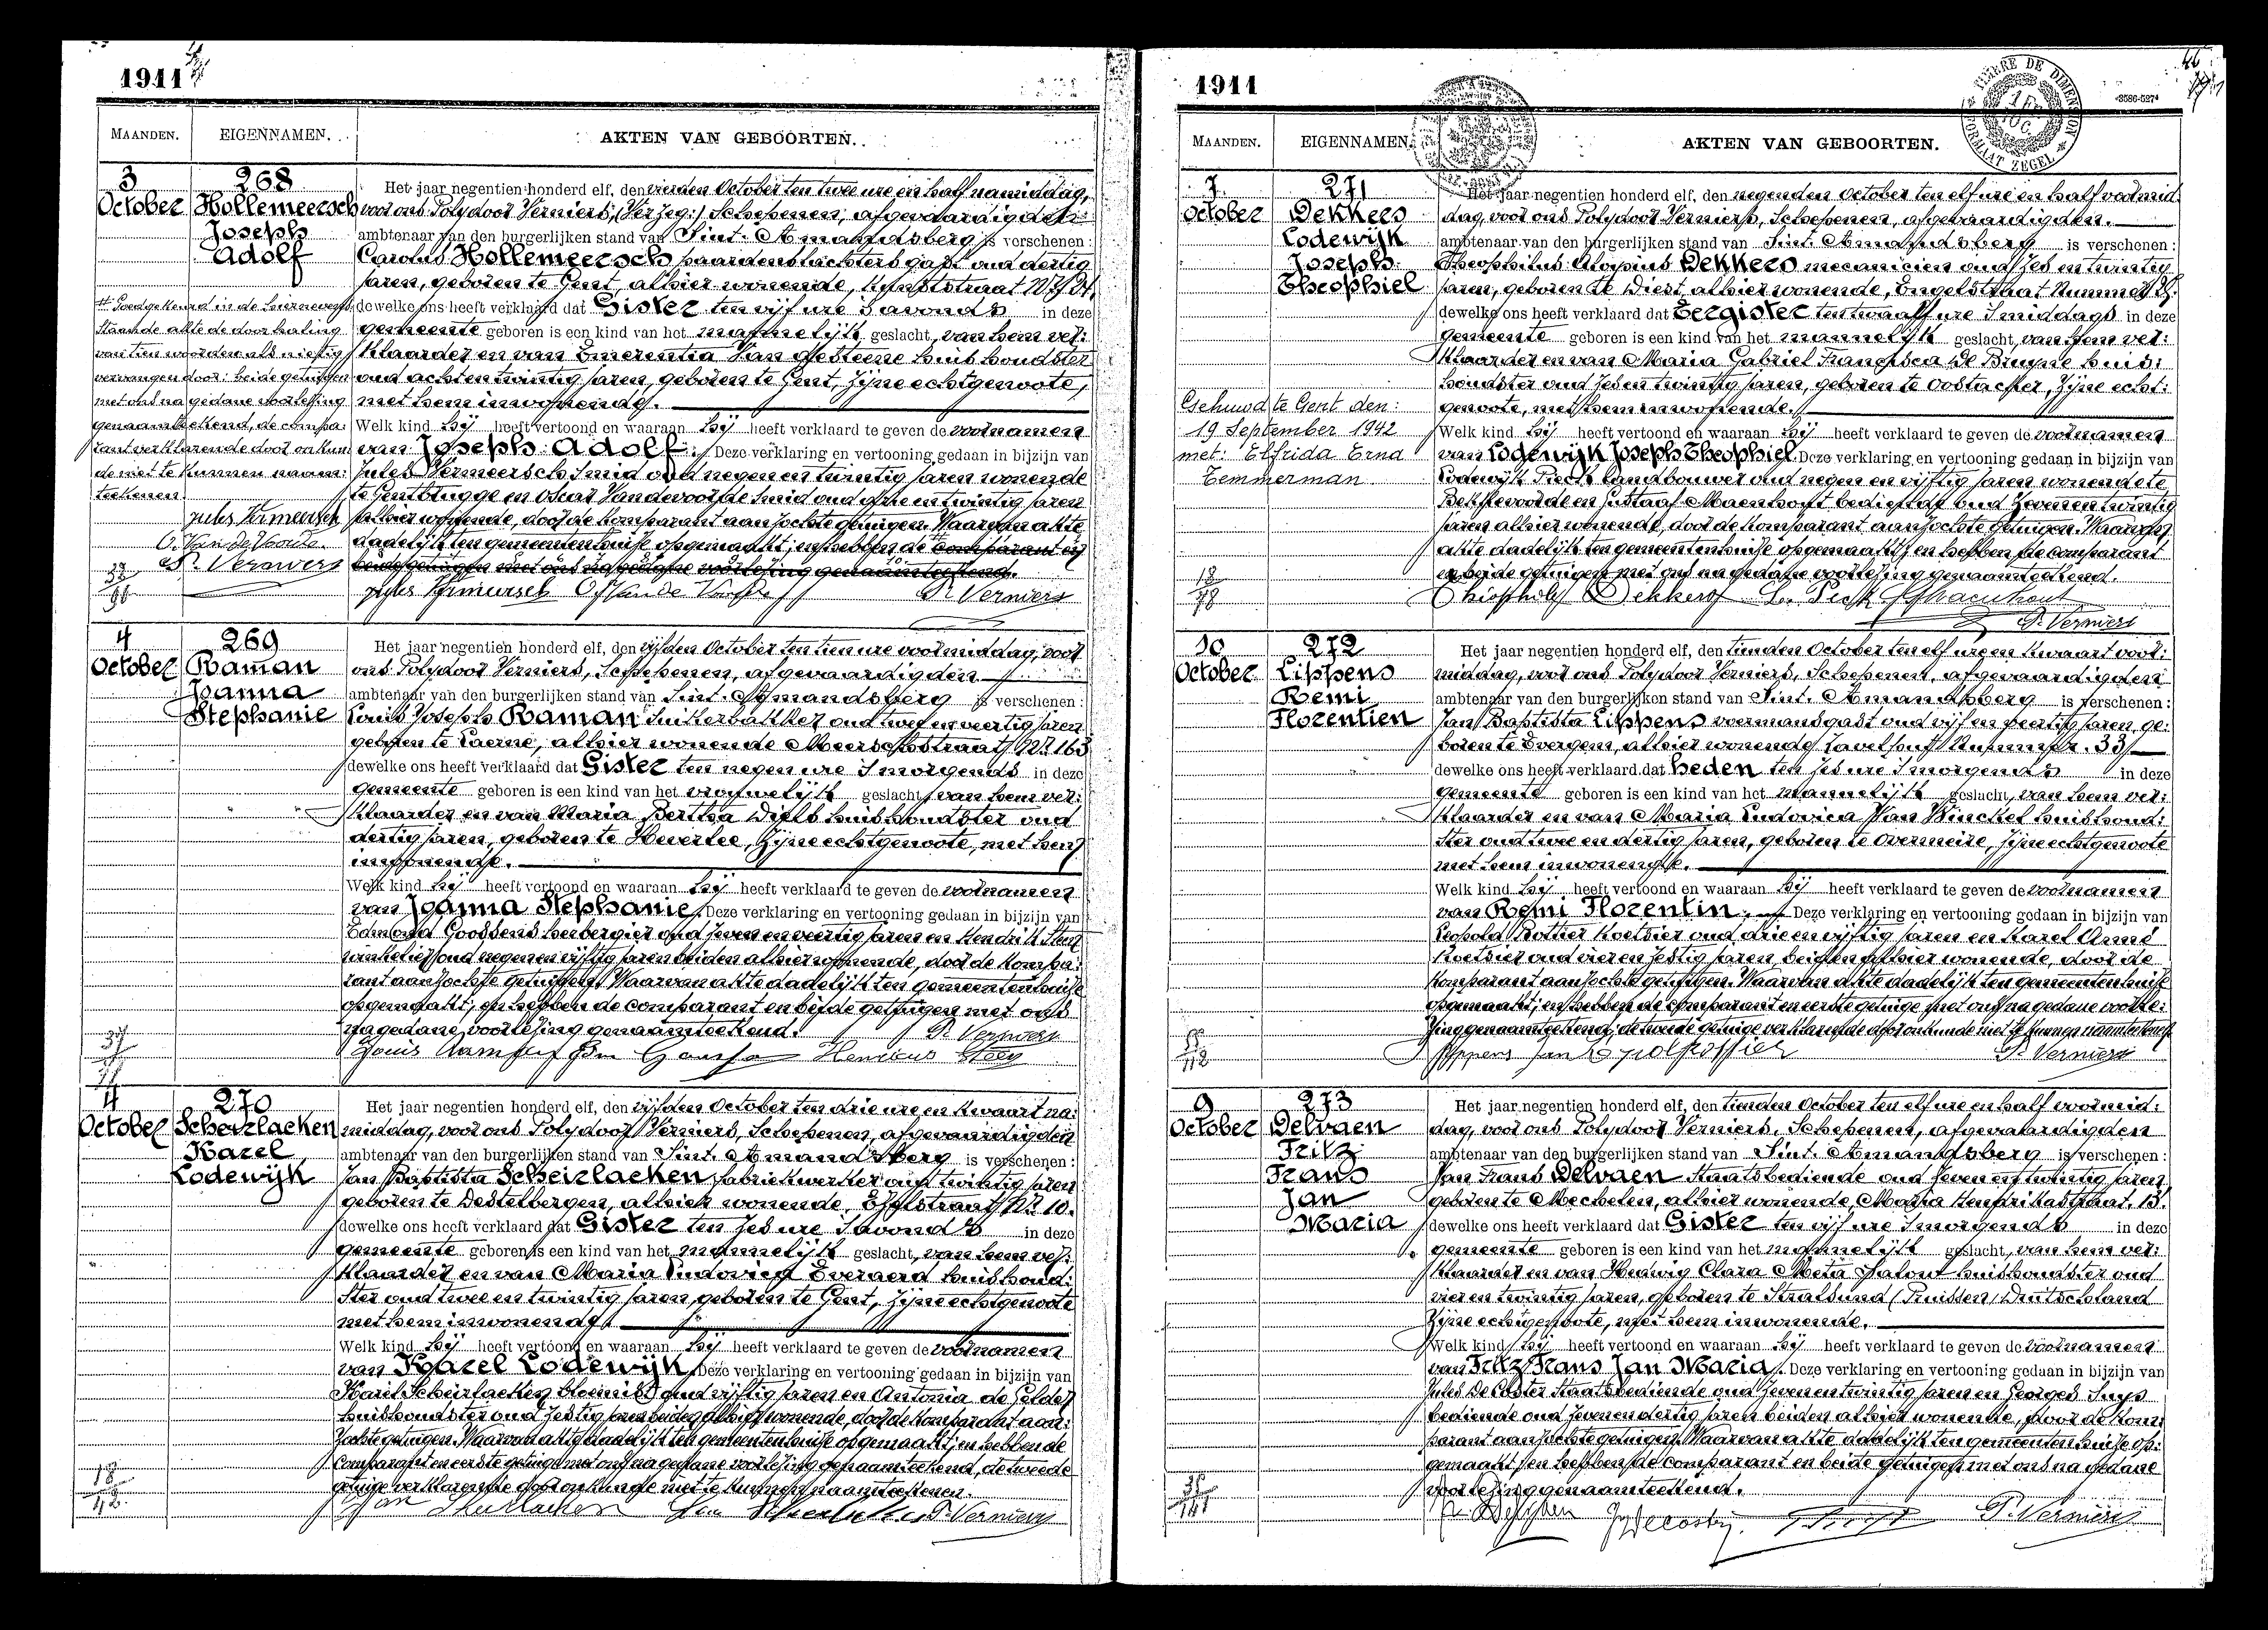 1911
MAANDEN. EIGENNAMEN. AKTEN VAN GEBOORTEN.
3 October
268
Hollemeersch
Joseph
Adolf
Het jaar negentien honderd elf, den vierden October ten twee ure en half namiddag,
voor ons Polydoor Verniers, (Verzeg:) Schepenen, afgevaardigden
ambtenaar van den burgerlijken stand van Sint. Amandsberg is verschenen :
Carolus Hollemeersch paardenslachtersgast oud dertig
jaren, geboren te Gent, alhier wonende,
dewelke ons heeft verklaard dat Gister ten vijf ure s'avonds in deze
gemeente geboren is een kind van het mannelijk geslacht, van hem ver:
klaarder en van Emerentia Van huishoudster
oud achtentwintig jaren, geboren te Gent, zijne echtgenoote,
met hem inwonende.
Welk kind hij heeft vertoond en waaraan hij heeft verklaard te geven de voornamen
van Joseph Adolf. Deze verklaring en vertooning gedaan in bijzijn van
Jules Vermeersch smid oud negen en twintig jaren wonende
te Gentbrugge en Oscar Vandevoorde smid oud drie en twintig jaren
alhier wonende, door de komparant aanzochte getuigen. Waarvan akte
dadelijk ten gemeentenhuise opgemaakt; en hebben de comparant en
beide getuigen met ons na gedane voorlezing genaamteekend.
Goedgekeurd in de hiernevens
staande akte de doorhaling
van tien woorden als nietig
vervangen door: beide getuigen
met ons na gedane voorlezing
genaamteekend, de compa:
rant verklarende door onkun
de niet te kunnen naam:
teekenen.
Jules Vermeersch
O. Van de Voorde
P. Verniers
Jules Vermeersch O. Van de Voorde P. Verniers
4 October
269
Raman
Joanna
Stephanie
Het jaar negentien honderd elf, den vijfden October ten tien ure voormiddag, voor
ons Polydoor Verniers, Schepenen, afgevaardigden
ambtenaar van den burgerlijken stand van Sint. Amandsberg is verschenen :
Louis Joseph Raman suikerbakker oud twee en veertig jaren
geboren te Laerne, alhier wonende Meerschstraat, Nr. 163
dewelke ons heeft verklaard dat Gister ten negen ure s'morgends in deze
gemeente geboren is een kind van het vrouwelijk geslacht, van hem ver:
klaarder en van Maria Bertha Diels huishoudster oud
dertig jaren, geboren te Heverlee, zijne echtgenoote, met hem
inwonende.
Welk kind hij heeft vertoond en waaraan hij heeft verklaard te geven de voornamen
van Joanna Stephanie. Deze verklaring en vertooning gedaan in bijzijn van
Edmond Goossens herbergier oud zeven en veertig jaren en Hendrik
winkelier oud negen en vijftig jaren beiden alhier wonende, door de kompa:
rant aanzochte getuigen. Waarvan akte dadelijk ten gemeentenhuise
opgemaakt; en hebben de comparant en beide getuigen met ons
na gedane voorlezing genaamteekend. P. Verniers
4 October
270
Scheirlaeken
Karel
Lodewijk
Het jaar negentien honderd elf, den vijfden October ten drie ure en kwaart na:
middag, voor ons Polydoor Verniers, Schepenen, afgevaardigden
ambtenaar van den burgerlijken stand van Sint. Amandsberg is verschenen :
Jan Baptista Scheirlaeken fabriekwerker oud twintig jaren
geboren te Destelbergen, alhier wonende, Nr. 10.
dewelke ons heeft verklaard dat Gister ten zes ure s'avonds in deze
gemeente geboren is een kind van het mannelijk geslacht, van hem ver:
klaarder en van Maria Ludovica Everaerd huishoud:
ster oud twee en twintig jaren, geboren te Gent, zijne echtgenoote
met hem inwonende.
Welk kind hij heeft vertoond en waaraan hij heeft verklaard te geven de voornamen
van Karel Lodewijk. Deze verklaring en vertooning gedaan in bijzijn van
Karel Scheirlaeken bloemist oud vijftig jaren en Antonia de Gelder
huishoudster oud zestig jaren beiden alhier wonende, door de komparant aan:
zochte getuigen. Waarvan akte dadelijk ten gemeentenhuise opgemaakt; en hebben de
comparant en eerste getuige met ons na gedane voorlezing genaamteekend, de tweede
getuige verklarende door onkunde niet te kunnen naamteekenen.
P. Verniers
1911
MAANDEN. EIGENNAMEN. AKTEN VAN GEBOORTEN.
7 October
271
Dekkers
Lodewijk
Joseph
Theophiel
Het jaar negentien honderd elf, den negenden October ten elf ure en half voormid
dag, voor ons Polydoor Verniers, Schepenen, afgevaardigden
ambtenaar van den burgerlijken stand van Sint. Amandsberg is verschenen :
Theophilus Aloysius Dekkers mecanicien oud zes en twintig
jaren, geboren te Diest, alhier wonende, Engelstraat Nummer
dewelke ons heeft verklaard dat Eergister ten twaalf ure s'middags in deze
gemeente geboren is een kind van het mannelijk geslacht, van hem ver:
klaarder en van Maria Gabriel Francisca De Bruyne huis:
houdster oud zes en twintig jaren, geboren te Oostacker, zijne echt:
genoote, met hem inwonende.
Welk kind hij heeft vertoond en waaraan hij heeft verklaard te geven de voornamen
van Lodewijk Joseph Theophiel. Deze verklaring en vertooning gedaan in bijzijn van
Lodewijk landbouwer oud negen en vijftig jaren wonende te
Bekkevoorde en Gustaaf Maenhout bediende oud zeven en twintig
jaren alhier wonende, door de komparant aanzochte getuigen. Waarvan
akte dadelijk ten gemeentenhuise opgemaakt; en hebben de comparant
en beide getuigen met ons na gedane voorlezing genaamteekend.
Gehuwd te Gent den:
19 September 1942
met: Elfrida Erna
Temmerman
P. Verniers
10 October
272
Lippens
Remi
Florentien
Het jaar negentien honderd elf, den tienden October ten elf ure en kwaart voor:
middag, voor ons Polydoor Verniers, Schepenen, afgevaardigden
ambtenaar van den burgerlijken stand van Sint. Amandsberg is verschenen :
Jan Baptista Lippens voermansgast oud vijf en veertig jaren, ge:
boren te Evergem, alhier wonende Nummer. 33
dewelke ons heeft verklaard dat heden ten zes ure s'morgends in deze
gemeente geboren is een kind van het mannelijk geslacht, van hem ver:
klaarder en van Maria Ludovica Van Winckel huishoud:
ster oud twee en dertig jaren, geboren te Overmeire, zijne echtgenoote
met hem inwonende.
Welk kind hij heeft vertoond en waaraan hij heeft verklaard te geven de voornamen
van Remi Florentin. Deze verklaring en vertooning gedaan in bijzijn van
Leopold Rottier koetsier oud drie en vijftig jaren en Karel
koetsier oud vier en zestig jaren, beiden alhier wonende, door de
komparant aanzochte getuigen. Waarvan akte dadelijk ten gemeentenhuise
opgemaakt; en hebben de comparant en eerste getuige met ons na gedane voorle:
zing genaamteekend, de tweede getuige verklarende door onkunde niet te kunnen naamteekenen
P. Verniers
9 October
273
Delvaen
Fritz
Frans
Jan
Maria
Het jaar negentien honderd elf, den tienden October ten elf ure en half voormid:
dag, voor ons Polydoor Verniers, Schepenen, afgevaardigden
ambtenaar van den burgerlijken stand van Sint. Amandsberg is verschenen :
Jan Frans Delvaen Staatsbediende oud zeven en twintig jaren
geboren te Mechelen, alhier wonende, Maria Henrikastraat. 13.
dewelke ons heeft verklaard dat Gister ten vijf ure s'morgends in deze
gemeente geboren is een kind van het mannelijk geslacht, van hem ver:
klaarder en van Hedwig Clara Meta huishoudster oud
vier en twintig jaren, geboren te Stralsund (Pruissen) Duitschland
zijne echtgenoote, met hem inwonende.
Welk kind hij heeft vertoond en waaraan hij heeft verklaard te geven de voornamen
van Fritz Frans Jan Maria. Deze verklaring en vertooning gedaan in bijzijn van
Jules De Coster Staatsbediende oud zeven en twintig jaren en Georges Suys
bediende oud zeven en dertig jaren beiden alhier wonende, door de kom:
parant aanzochte getuigen. Waarvan akte dadelijk ten gemeentenhuise op:
gemaakt; en hebben de comparant en beide getuigen met ons na gedane
voorlezing genaamteekend.
P. Verniers